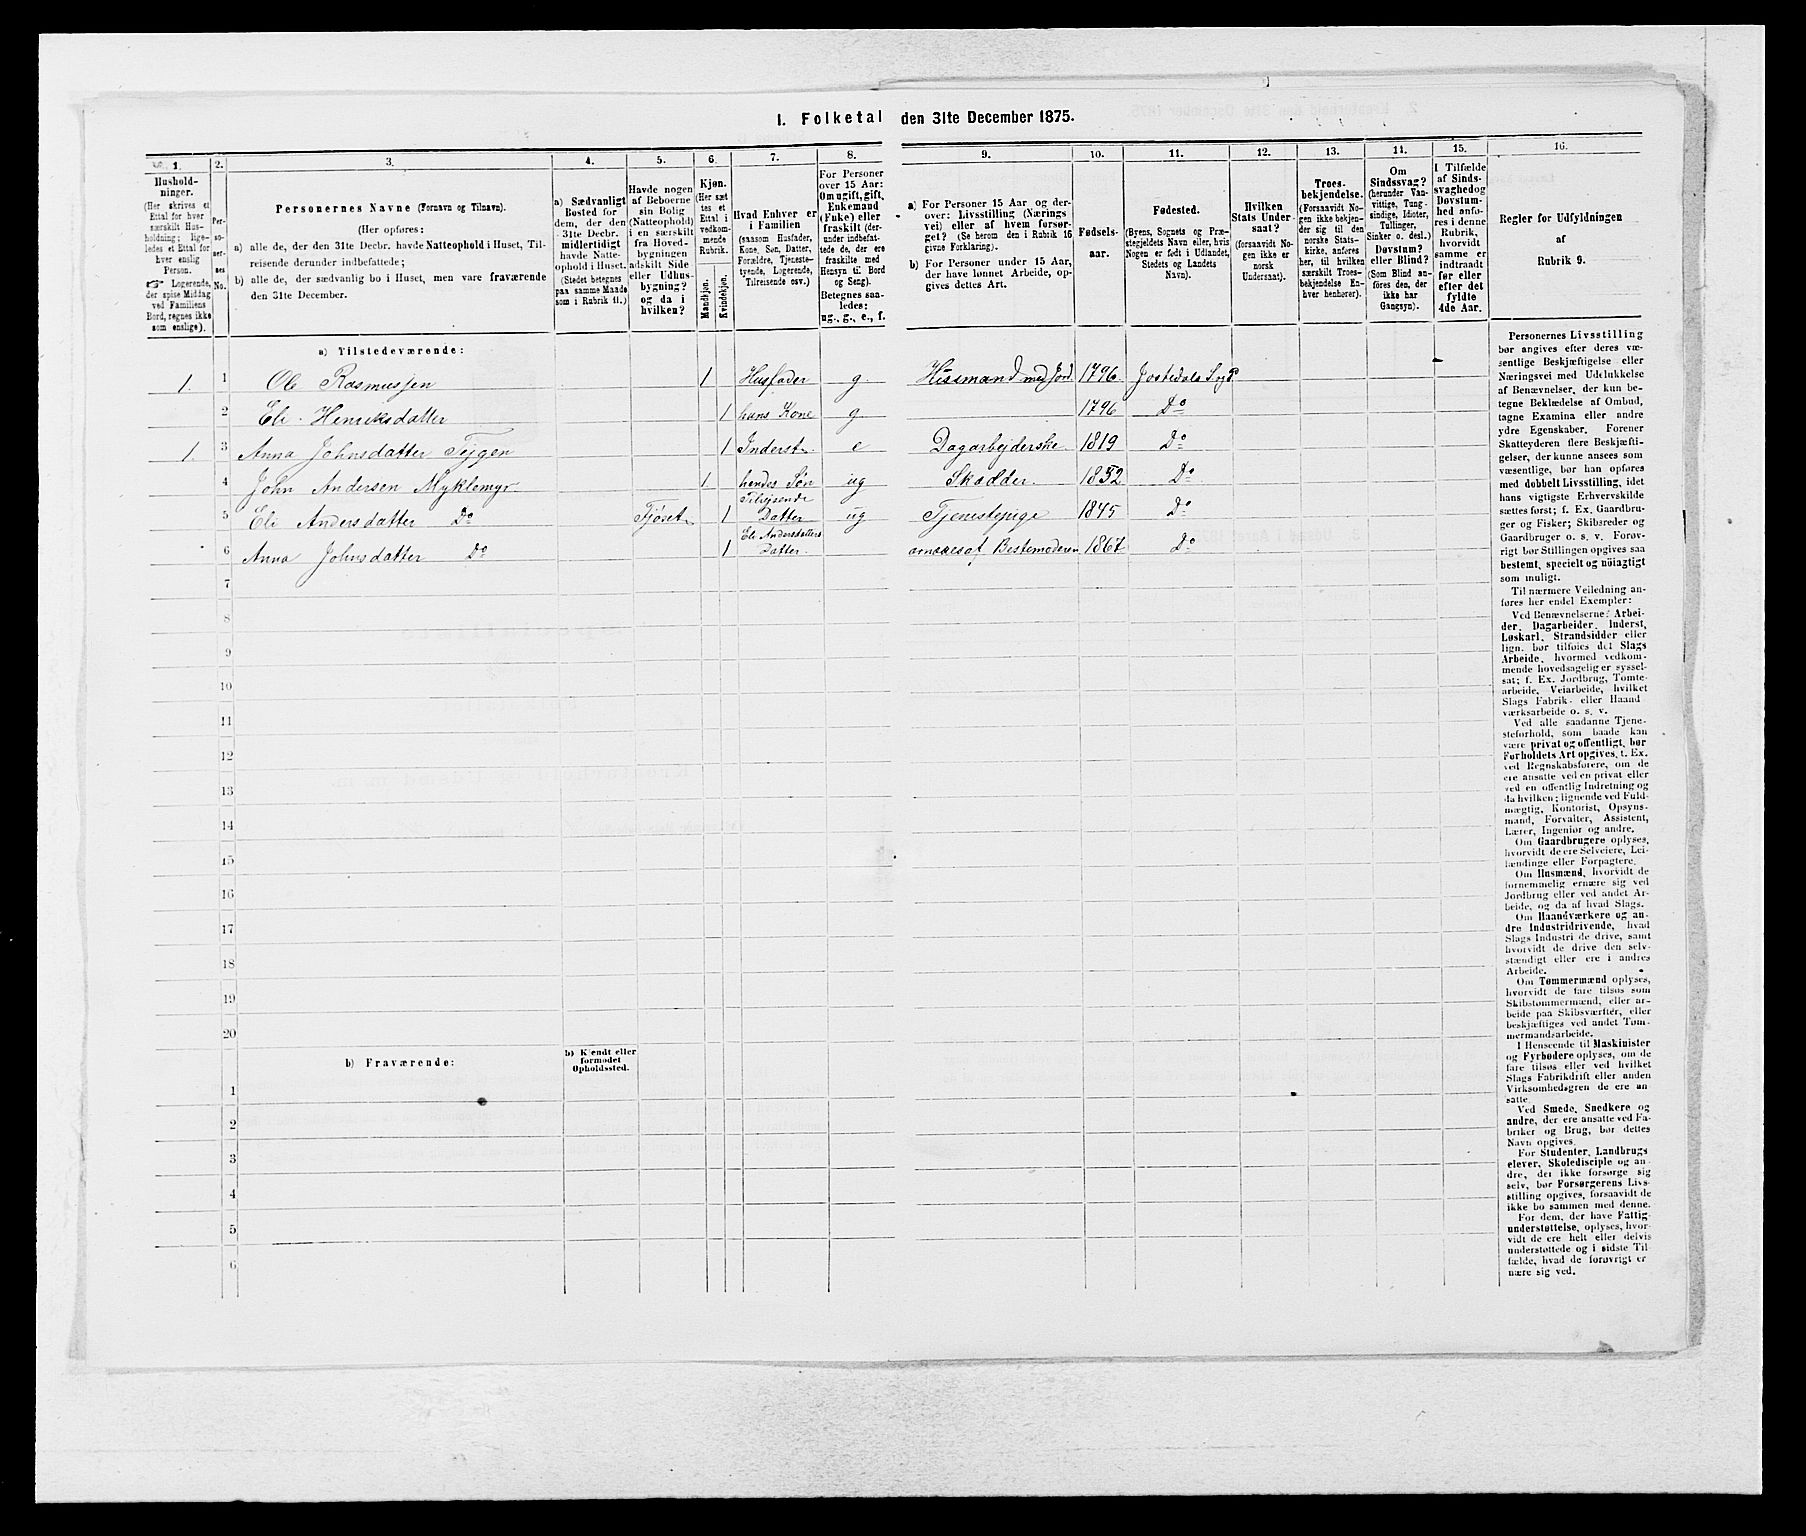 I. Folketal den 31te December 1875.
1. 2. 3. 4. 5. 6. 7. 8. 9. 10. 11. 12. 13. 14. 15. 16.
Hushold-
ninger.
(Her skrives et
Ettal for hver
særskilt Hus-
holdning; lige-
ledes et Ettal for
hver enslig
Person.
☞ Logerende,
der spise Middag
ved Familiens
Bord, regnes ikke
som enslige).
Per-
so-
ner-
nes
No.
Personernes Navne (Fornavn og Tilnavn).
(Her opføres:
a) alle de, der den 31te Decbr. havde Natteophold i Huset, Til-
reisende derunder indbefattede;
b) alle de, der sædvanlig bo i Huset, men vare fraværende
den 31te December.
a) Sædvanligt
Bosted for
dem, der den
31te Decbr.
midlertidigt
havde Natte-
ophold i Huset.
(Stedet betegnes
paa samme Maade
som i Rubrik 11.)
Havde nogen
af Beboerne
sin Bolig
(Natteophold)
i en særskilt
fra Hoved-
bygningen
adskilt Side
eller Udhus-
bygning?
og da i
hvilken?
Kjøn.
(Her sæt
tes et
Ettal i
vedkom-
mende
Rubrik.
Mandkjøn.
Kvindekjøn.
Hvad Enhver er
i Familien
(saasom Husfader,
Kone, Søn, Datter,
Forældre, Tjeneste-
tyende, Logerende,
Tilreisende osv.)
For Personer
over 15 Aar:
Om ugift, gift,
Enkemand
(Enke) eller
fraskilt (der-
under indbefat-
tede de, der ere
fraskilte med
Hensyn til Bord
og Seng).
Betegnes saa-
ledes:
ug., g., e., f.
a) For Personer 15 Aar og der-
over: Livsstilling (Nærings
vei) eller af hvem forsør-
get? (Se herom den i Rubrik 16
givne Forklaring).
b) For Personer under 15 Aar,
der have lønnet Arbeide, op-
gives dettes Art.
Fødsels-
aar.
Fødested.
(Byens, Sognets og Præ-
stegjeldets Navn eller, hvis
Nogen er født i Udlandet,
Stedets og Landets
Navn).
Hvilken
Stats Under-
saat?
(forsaavidt No-
gen ikke er
norsk
Undersaat).
Troes-
bekjendelse.
(Forsaavidt No-
gen ikke bekjen-
der sig til den
norske Stats-
kirke, anføres
her, til hvilken
særskilt Troes-
bekjendelse En-
hver henhører).
Om
Sindssvag?
(herunder Van-
vittige, Tung-
sindige, Idioter,
Tullinger,
Sinker o. desl.)
Døvstum?
eller Blind?
(Som Blind an-
føres den, der
ikke har
Gangsyn).
I Tilfælde
af Sinds-
svaghed og
Døvstum-
hed anfø-
res i denne
Rubrik,
hvorvidt
samme er
indtraadt
før eller
efter det
fyldte
4de Aar.
Regler for Udfyldningen
af
Rubrik 9.
a) Tilstedeværende:
1. 1 Ole Rasmussen 1 Husfader g. Husmand med Jord. 1796 Jostedals S og P.
2 Eli Henriksdatter 1 hans Kone g 1796 Do
1. 3 Anna Johnsdatter Tejgen 1 Inderst e Dagarbejderske 1819 Do
4 John Andersen Myklemyr 1 hendes Søn ug Skrædder. 1852 Do
5 Eli Andersdatter Do Fjøset 1 Tilrejsende Datter ug Tjenestepige 1845 Do
6 Anna Johnsdatter Do 1 Eli Andersdatters Datter. Bestemoderen 1867 Do
7
8
9
10
11
12
13
14
15
16
17
18
19
20
b) Fraværende:
b) Kjendt eller
formodet
Opholdssted.
1
2
3
4
5
6
Personernes Livsstilling
bør angives efter deres væ-
sentlige Beskjæftigelse eller
Næringsvei med Udelukkelse
af Benævnelser, der kun be-
tegne Beklædelse af Ombud,
tagne Examina eller andre
ydre Egenskaber. Forener
Skatteyderen flere Beskjæfti-
gelser, der kunne ansees som
væsentlige, bør han opføres
med dobbelt Livsstilling, idet
hans vigtigste Erhvervskilde
sættes først; f. Ex. Gaardbru-
ger og Fisker; Skibsreder og
Gaardbruger o. s. v. Forøv-
rigt bør Stillingen opgives saa
bestemt, specielt og nøiagtigt
som muligt.
Til nærmere Veiledning an-
føres her endel Exempler:
Ved Benævnelserne: Arbei-
der, Dagarbeider, Inderst,
Løskarl, Strandsidder eller
lign. bør tilføies det Slags
Arbeide, hvormed vedkom-
mende hovedsagelig er syssel-
sat; f. Ex. Jordbrug, Tømte-
arbeide, Veiarbeide, hvilket
Slags Fabrik- eller Haand
værksarbeide o. s. v.
Ved alle saadanne Tjene-
steforhold, som baade kan
være privat og offentligt, bør
Forholdets Art opgives, t. Ex.
ved Regnskabsførere, om de
ere ansatte ved en privat eller
ved en offentlig Indretning og
da hvilken; lignende ved Fuld-
mægtig, Kontorist, Opsyns-
mand, Forvalter, Assistent,
Lærer, Ingeniør og andre.
Om Gaardbrugere oplyses,
hvorvidt de ere Selveiere, Lei-
lændinge eller Forpagtere.
Om Husmænd, hvorvidt de
fornemmelig ernære sig ved
Jordbrug eller ved andet Ar-
beide, og da af hvad Slags.
Om Haandværkere og an-
dre Industridrivende, hvad
Slags Industri de drive, samt
hvorvidt de drive den selv-
stændigt eller ere i andres
Arbeide.
Om Tømmermænd oplyses,
hvorvidt de fare tilsøs som
Skibstømmermænd, eller ar-
beide paa Skibsværfter, eller
beskjæftiges ved andet Tøm-
mermandsarbeide.
I Henseende til Maskinister
og Fyrbødere oplyses, om de
fare tilsøs eller ved hvilket
Slags Fabrikdrift eller anden
Virksomhedsgren de ere an-
satte.
Ved Smede, Snedkere og
andre, der ere ansatte ved Fa-
briker og Brug, bør dettes
Navn opgives.
For Studenter, Landbrugs
elever, Skoledisciple og an-
dre, der ikke forsørge sig
selv, bør Forsørgerens Livs-
stilling opgives, forsaavidt de
ikke bo sammen med denne.
For dem, der have Fattig-
understøttelse, oplyses, hvor-
vidt de ere helt eller delvis
understøttede og i sidste Til-
fælde, hvad de forøvrigt er
nære sig ved.